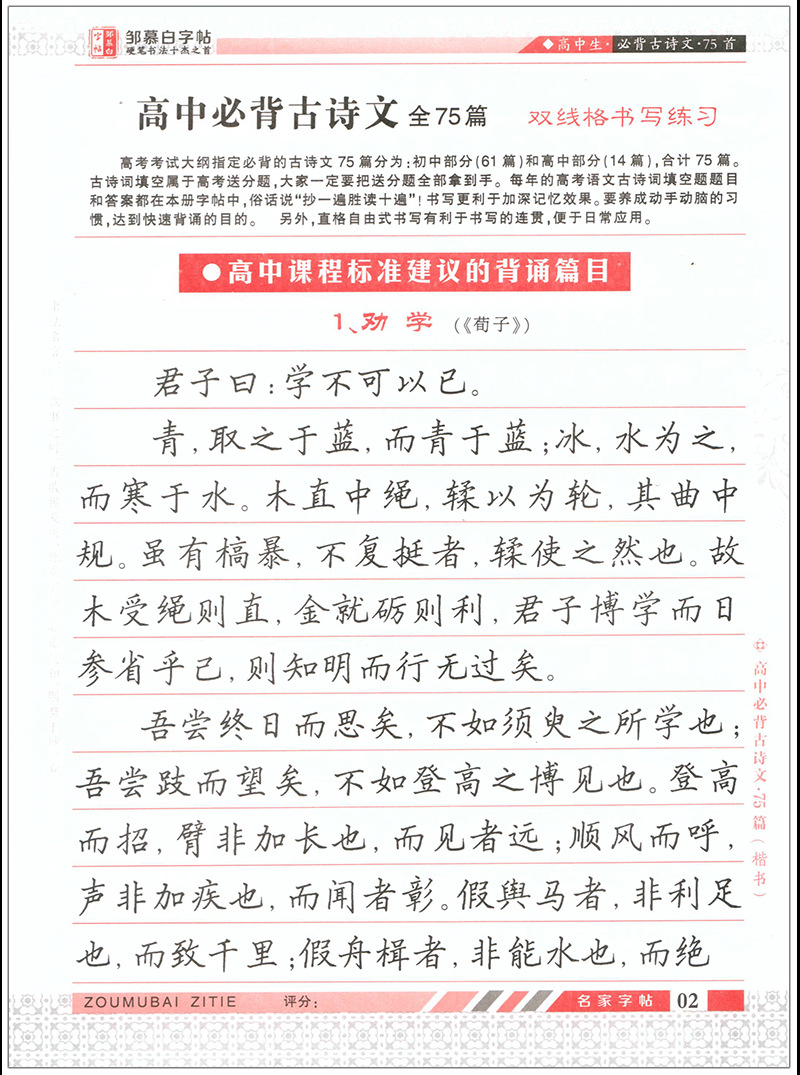 字帖 邹慕白 邹慕白字帖
硬笔书法十杰之首
◆高中生·必背古诗文·75首
高中必背古诗文 全75篇 双线格书写练习
高考考试大纲指定必背的古诗文75篇分为:初中部分(61篇)和高中部分(14篇),合计75篇。
古诗词填空属于高考送分题,大家一定要把送分题全部拿到手。每年的高考语文古诗词填空题题目
和答案都在本册字帖中,俗话说“抄一遍胜读十遍”!书写更利于加深记忆效果。要养成动手动脑的习
惯,达到快速背诵的目的。 另外,直格自由式书写有利于书写的连贯,便于日常应用。
●高中课程标准建议的背诵篇目
1、劝学 (《荀子》)
君子曰:学不可以已。
青,取之于蓝,而青于蓝;冰,水为之,
而寒于水。木直中绳,輮以为轮,其曲中
规。虽有槁暴,不复挺者,輮使之然也。故
木受绳则直,金就砺则利,君子博学而日
参省乎己,则知明而行无过矣。
吾尝终日而思矣,不如须臾之所学也;
吾尝跂而望矣,不如登高之博见也。登高
而招,臂非加长也,而见者远;顺风而呼,
声非加疾也,而闻者彰。假舆马者,非利足
也,而致千里;假舟楫者,非能水也,而绝
高中必背古诗文·75篇(楷书)
ZOUMUBAI ZITIE 评分: 名家字帖 02